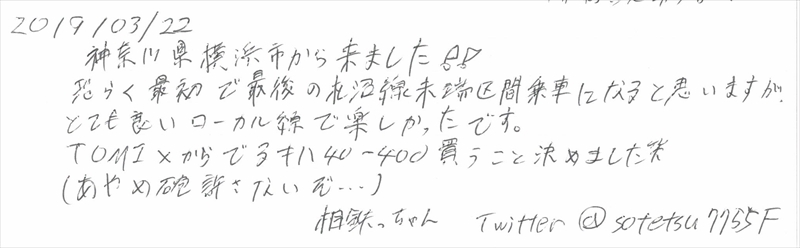 2019/03/22
神奈川県横浜市から来ました!!
恐らく最初で最後の札沼線末端区間乗車になると思いますが、
とても良いローカル線で楽しかったです。
TOMIXからでるキハ40-400買うこと決めました笑
(あやめ砲許さないぞ…)
相鉄っちゃん Twitter @sotetsu7755F